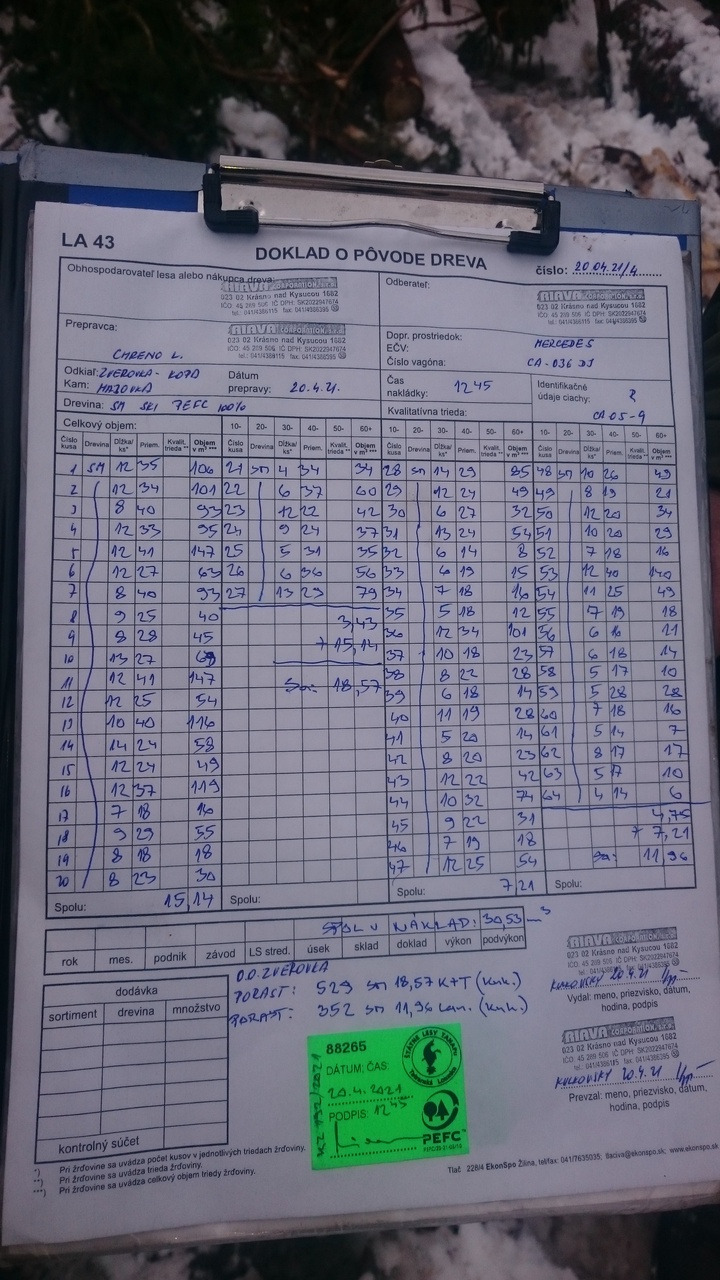 LA 43
DOKLAD O PÔVODE DREVA
číslo: 20.04.21/4
Obhospodarovateľ lesa alebo nákupca dreva:
CORPORATION, s.r.o.
023 02 Krásno nad Kysucou 1682
IČO: 45 289 506 IČ DPH: SK2022947674
Odberateľ:
CORPORATION, s.r.o.
023 02 Krásno nad Kysucou 1682
IČO: 45 289 506 IČ DPH: SK2022947674
Prepravca:
CORPORATION, s.r.o.
023 02 Krásno nad Kysucou 1682
IČO: 45 289 506 IČ DPH: SK2022947674
CHRENO L.
Dopr. prostriedok: MERCEDES
EČV:
Číslo vagóna: CA-036 DJ
Odkiaľ: ZVEROVKA-
Kam:
Dátum prepravy: 20.4.21.
Čas nakládky: 12 45
Identifikačné údaje ciachy:
CA 05-9
Drevina: SM PEFC 100%
Kvalitatívna trieda:
Celkový objem: 10- 20- 30- 40- 50- 60+ 10- 20- 30- 40- 50- 60+ 10- 20- 30- 40- 50- 60+
Číslo kusa Drevina Dĺžka/ ks* Priem. Kvalit. trieda ** Objem v m³ ***
1 SM 12 35 106 21 SM 4 34 34 28 SM 14 29 85 48 SM 10 26 49
2 12 34 101 22 6 37 60 29 12 24 49 49 8 19 21
3 8 40 93 23 12 22 42 30 6 27 32 50 12 20 34
4 12 33 95 24 9 24 37 31 13 24 54 51 10 20 29
5 12 41 147 25 5 31 35 32 6 14 8 52 7 18 16
6 12 27 63 26 6 36 56 33 6 19 15 53 12 40 140
7 8 40 93 27 13 29 79 34 7 18 16 54 11 25 49
8 9 25 40 35 5 18 12 55 7 19 18
9 8 28 45 3,43 36 12 34 101 56 6 16 11
10 13 27 69 + 15,14 37 10 18 23 57 6 18 14
11 12 41 147 Sa: 18,57 38 8 22 28 58 5 17 10
12 12 25 54 39 6 18 14 59 5 28 28
13 10 40 116 40 11 19 28 60 7 18 16
14 14 24 58 41 5 20 14 61 5 14 7
15 12 24 49 42 8 20 23 62 8 17 17
16 12 37 119 43 12 22 42 63 5 17 10
17 7 18 16 44 10 32 74 64 4 14 6
18 9 29 55 45 9 22 31 4,75
19 8 18 18 46 7 19 18 + 7,21
20 8 23 30 47 12 25 54 Sa: 11,96
Spolu: 15,14 Spolu: Spolu: 7,21 Spolu:
SPOLU NÁKLAD: 30,53 m³
rok mes. podnik závod LS stred. úsek sklad doklad výkon podvýkon
O.O. ZVEROVKA
PORAST: 529 SM 18,57 K+T (Kuk.)
PORAST: 352 SM 11,96 Lan. (Kuk.)
dodávka
sortiment drevina množstvo
kontrolný súčet
CORPORATION, s.r.o.
023 02 Krásno nad Kysucou 1682
IČO: 45 289 506 IČ DPH: SK2022947674
KULKOVSKÝ 20.4.21
Vydal: meno, priezvisko, dátum,
hodina, podpis
CORPORATION, s.r.o.
023 02 Krásno nad Kysucou 1682
IČO: 45 289 506 IČ DPH: SK2022947674
KULKOVSKÝ 20.4.21
Prevzal: meno, priezvisko, dátum,
hodina, podpis
88265
DÁTUM: ČAS:
20.4.2021
PODPIS: 12 45
ŠTÁTNE LESY TANAPU
Tatranská Lomnica
PEFC
KZ 192/2021
*) Pri žrďovine sa uvádza počet kusov v jednotlivých triedach žrďoviny.
**) Pri žrďovine sa uvádza trieda žrďoviny.
***) Pri žrďovine sa uvádza celkový objem triedy žrďoviny.
Tlač 228/4 EkonSpo Žilina, tel/fax: 041/7635035; tlaciva@ekonspo.sk; www.ekonspo.sk